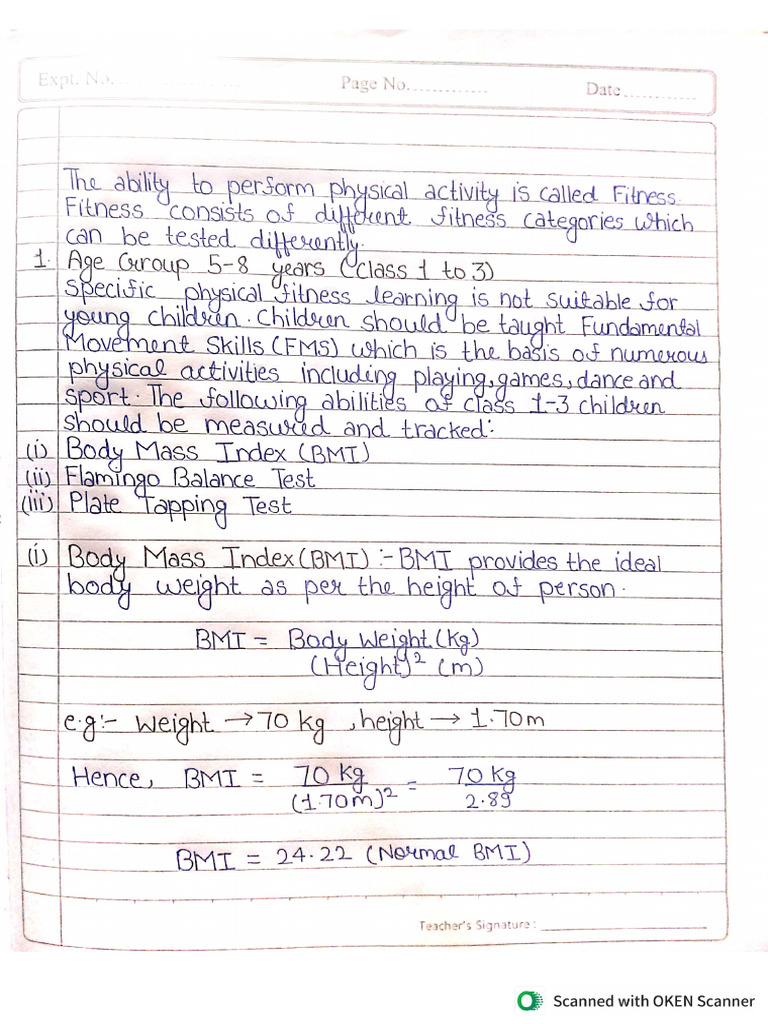 Expt. No.....................
Page No.............
Date............
The ability to perform physical activity is called Fitness.
Fitness consists of different fitness categories which
can be tested differently.
1. Age Group 5-8 years (Class 1 to 3)
Specific physical fitness learning is not suitable for
young children. Children should be taught Fundamental
Movement Skills (FMS) which is the basis of numerous
physical activities including playing, games, dance and
sport. The following abilities of class 1-3 children
should be measured and tracked:
(i) Body Mass Index (BMI)
(ii) Flamingo Balance Test
(iii) Plate Tapping Test
(i) Body Mass Index (BMI) :- BMI provides the ideal
body weight as per the height of person.
BMI = Body Weight (kg)
(Height)² (m)
e.g:- Weight → 70 kg , height → 1.70m
Hence, BMI = 70 kg / (1.70m)² = 70 kg / 2.89
BMI = 24.22 (Normal BMI)
Teacher's Signature : ____________________
Scanned with OKEN Scanner